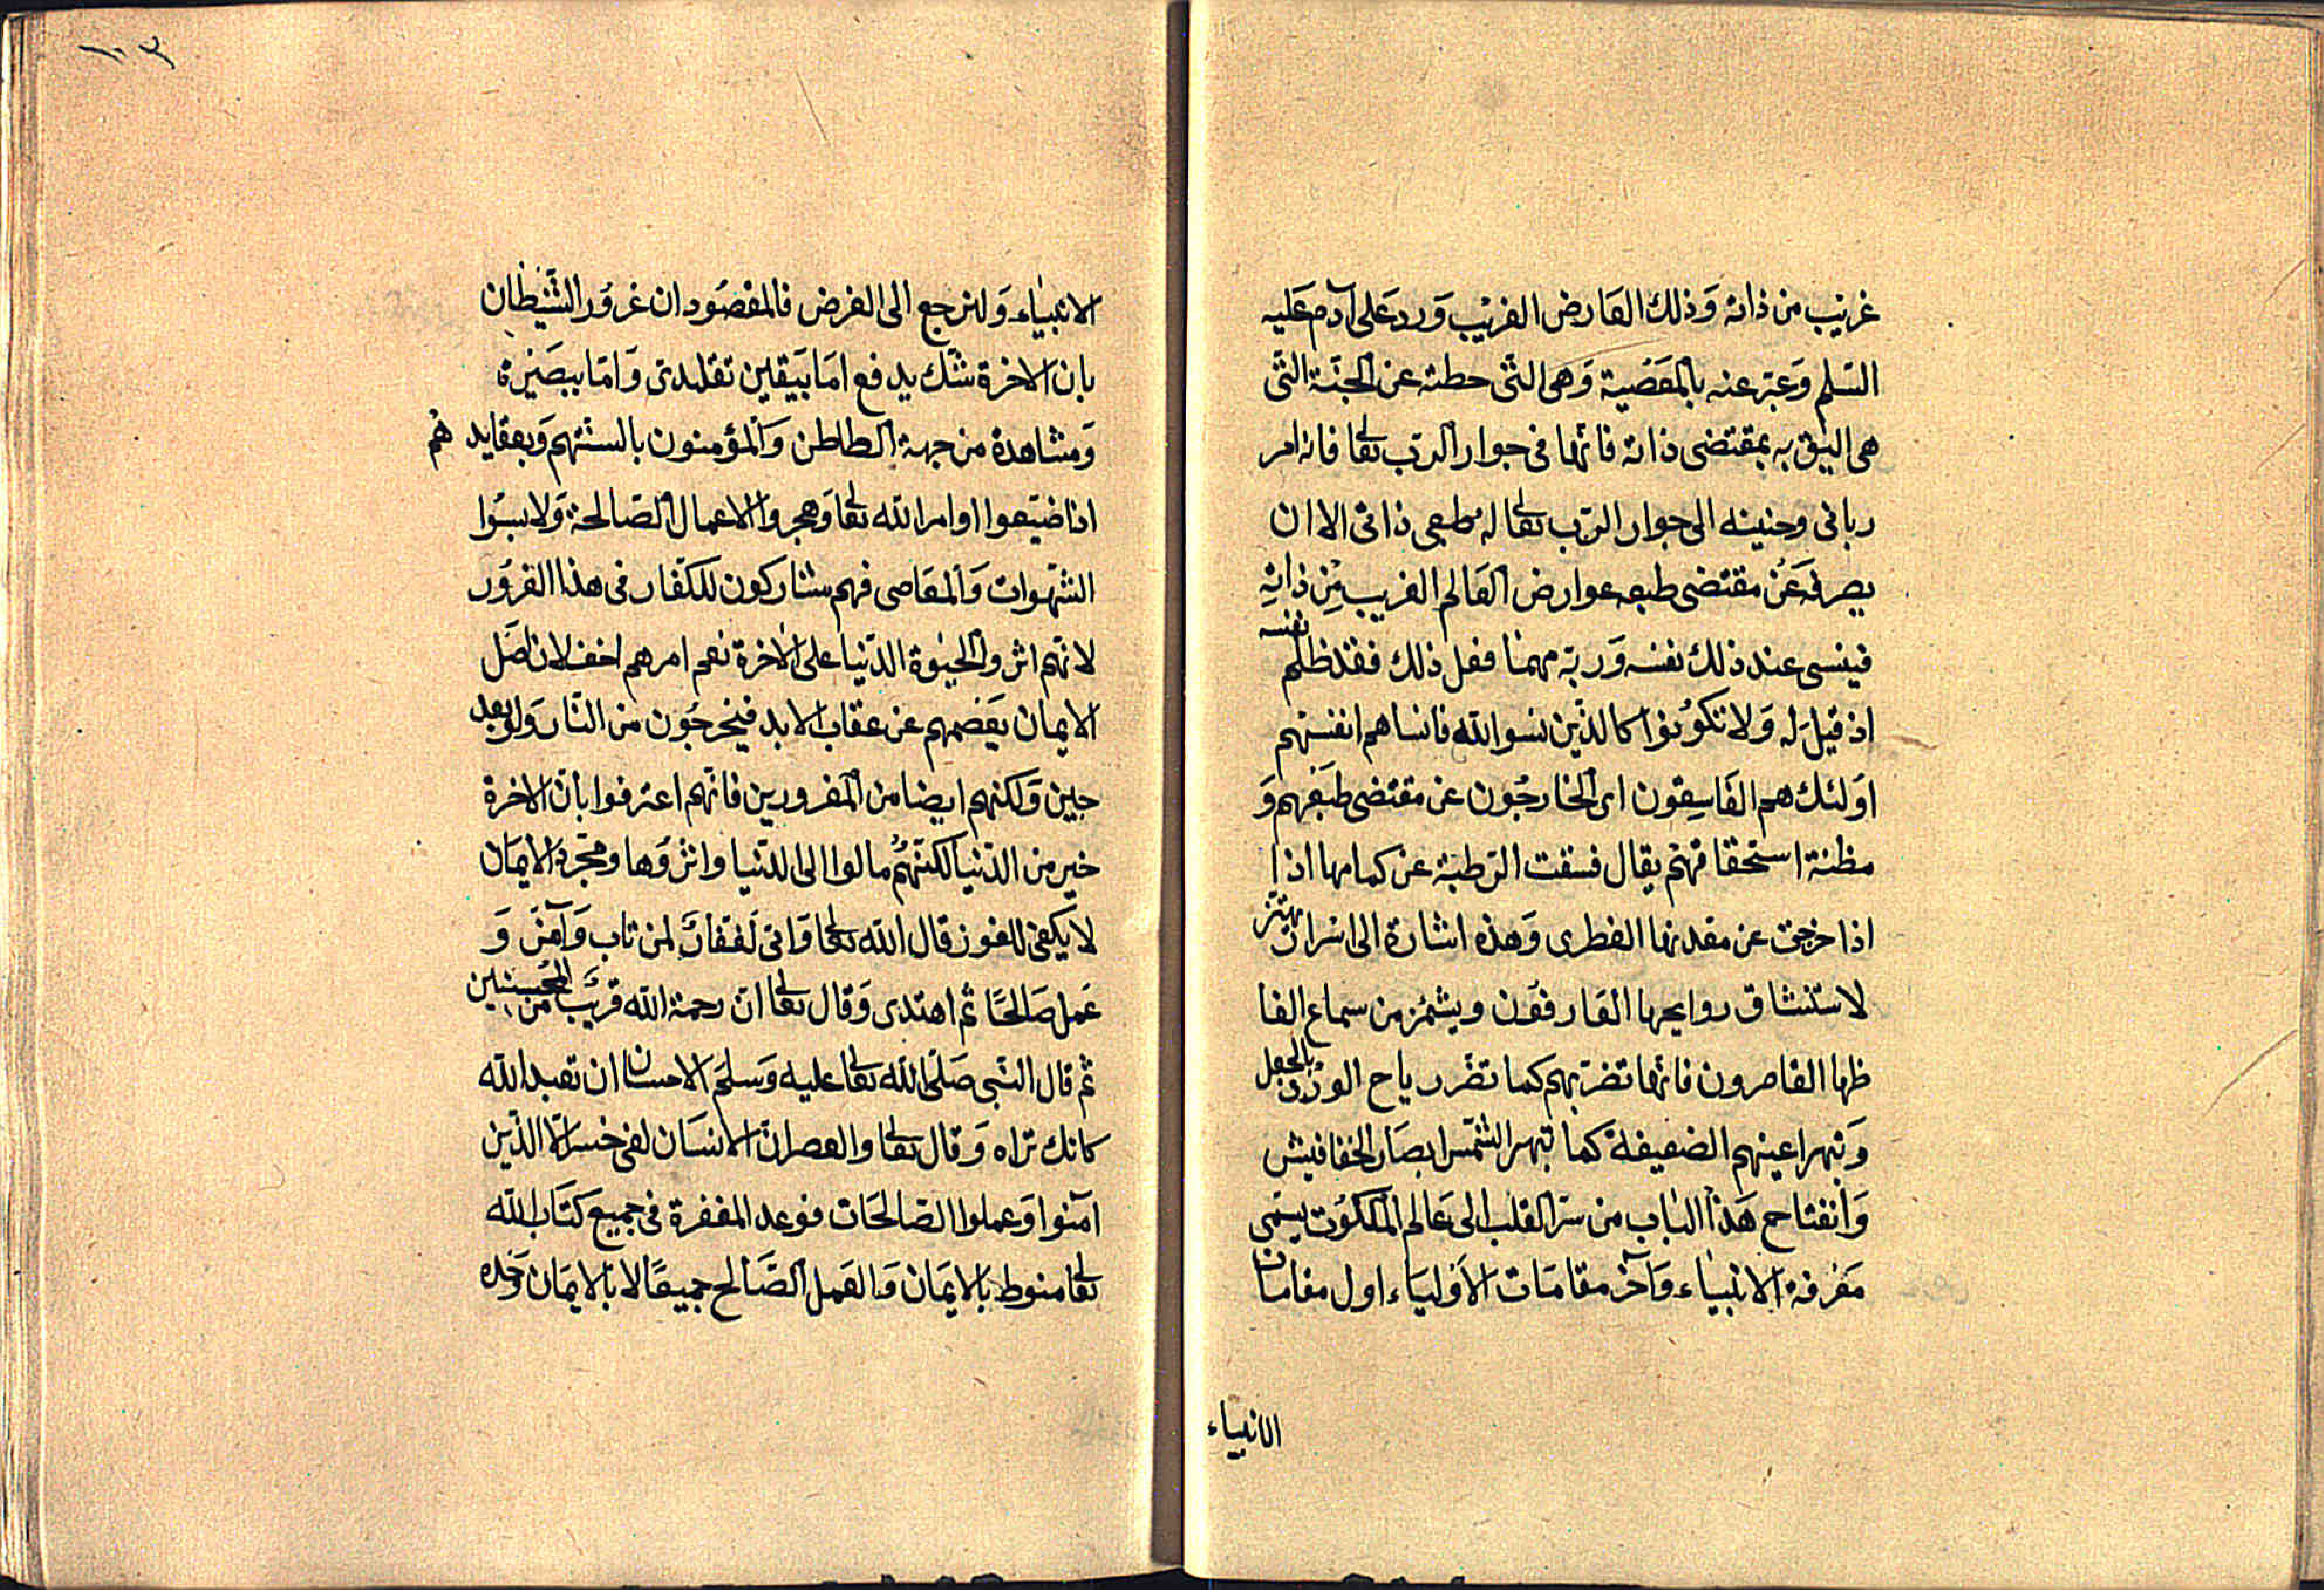 غريب من ذاته وذلك العارض الغريب ورد على آدم عليه
السلم وعبر عنه بالمعصية وهي التي حطته عن الجنة التي
هي اليق به بمقتضى ذاته فانها في جوار الرب تعا فانه امر
رباني وحنينه الى جوار الرب تعا له طبعي ذاتي الا ان
يصرفه عن مقتضى طبعه عوارض العالم الغريب من ذاته
فينسى عند ذلك نفسه وربه مهما فعل ذلك فقد ظلم نفسه
اذ قيل له ولا تكونوا كالذين نسوا الله فانساهم انفسهم
اولئك هم الفاسقون اى الخارجون عن مقتضى طبعهم و
مظنة استحقاقهم يقال فسقت الرطبة عن كمامها اذا
اذا خرجت عن معدنها الفطرى وهذه اشارة الى اسرار يهتز
لاستنشاق روايحها العارفون ويشمئز من سماع الفا
ظها القاصرون فانها تضر بهم كما تضر رياح الورد بالجعل
وتبهر اعينهم الضعيفة كما تبهر الشمس ابصار الخفافيش
وانفتاح هذا الباب من سر القلب الى عالم الملكوت يسمى
معرفة الانبياء وآخر مقامات الاولياء اول مقامات
الانبياء
١٠٣
الانبياء ولنرجع الى الغرض فالمقصود ان غرور الشيطان
بان الاخرة شك يدفع اما بيقين تقليدى واما ببصيرة
ومشاهدة من جهة الطاطن والمؤمنون بالسنتهم وبعقايد هم
اذا ضيعوا اوامر الله تعا وهجروا الاعمال الصالحة ولابسوا
الشهوات والمعاصى فهم مشاركون للكفار فى هذا الغرور
لانهم اثروا الحيوة الدنيا على الاخرة نعم امرهم اخف لان اصل
الايمان يعصمهم عن عقاب الابد فيخرجون من النار ولو بعد
حين ولكنهم ايضا من المغرورين فانهم اعترفوا بان الاخرة
خير من الدنيا لكنهم مالوا الى الدنيا واثروها ومجرد الايمان
لا يكفى للفوز قال الله تعا وانى لغفار لمن تاب وآمن و
عمل صالحا ثم اهتدى وقال تعا ان رحمة الله قريب من المحسنين
ثم قال النبى صلى الله تعا عليه وسلم الاحسان ان تعبد الله
كانك تراه وقال تعا والعصر ان الانسان لفى خسر الا الذين
آمنوا وعملوا الصالحات فوعد المغفرة فى جميع كتاب الله
تعا منوط بالايمان والعمل الصالح جميعا لا بالايمان وحده